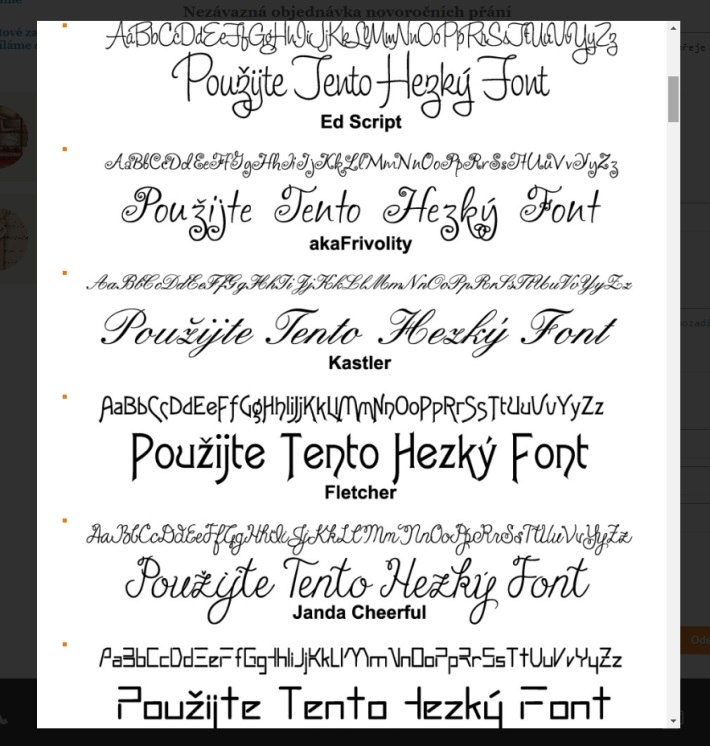 Nezávazná objednávka novoročních přání
AaBbCcDdEeFfGgHhIiJjKkLlMmNnOoPpRrSsTtUuVvYyZz
Použijte Tento Hezký Font
Ed Script
AaBbCcDdEeFfGgHhIiJjKkLlMmNnOoPpRrSsTtUuVvYyZz
Použijte Tento Hezký Font
akaFrivolity
AaBbCcDdEeFfGgHhIiJjKkLlMmNnOoPpRrSsTtUuVvYyZz
Použijte Tento Hezký Font
Kastler
AaBbCcDdEeFfGgHhIiJjKkLlMmNnOoPpRrSsTtUuVvYyZz
Použijte Tento Hezký Font
Fletcher
AaBbCcDdEeFfGgHhIiJjKkLlMmNnOoPpRrSsTtUuVvYyZz
Použijte Tento Hezký Font
Janda Cheerful
AaBbCcDdEeFfGgHhIiJjKkLlMmNnOoPpRrSsTtUuVvYyZz
Použijte Tento Hezký Font